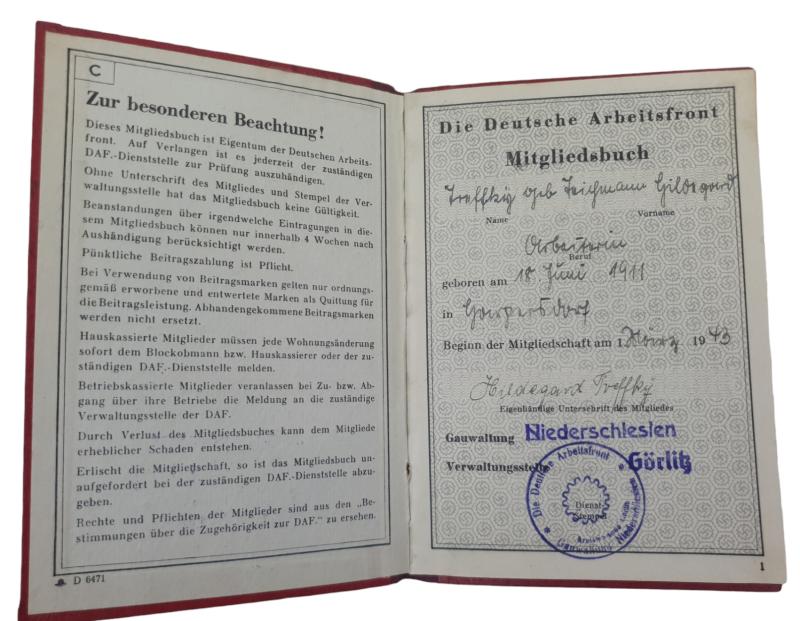 C
Zur besonderen Beachtung!
Dieses Mitgliedsbuch ist Eigentum der Deutschen Arbeits-
front. Auf Verlangen ist es jederzeit der zuständigen
DAF.-Dienststelle zur Prüfung auszuhändigen.
Ohne Unterschrift des Mitgliedes und Stempel der Ver-
waltungsstelle hat das Mitgliedsbuch keine Gültigkeit.
Beanstandungen über irgendwelche Eintragungen in die-
sem Mitgliedsbuch können nur innerhalb 4 Wochen nach
Aushändigung berücksichtigt werden.
Pünktliche Beitragszahlung ist Pflicht.
Bei Verwendung von Beitragsmarken gelten nur ordnungs-
gemäß erworbene und entwertete Marken als Quittung für
die Beitragsleistung. Abhandengekommene Beitragsmarken
werden nicht ersetzt.
Hauskassierte Mitglieder müssen jede Wohnungsänderung
sofort dem Blockobmann bzw. Hauskassierer oder der zu-
ständigen DAF.-Dienststelle melden.
Betriebskassierte Mitglieder veranlassen bei Zu- bzw. Ab-
gang über ihre Betriebe die Meldung an die zuständige
Verwaltungsstelle der DAF.
Durch Verlust des Mitgliedsbuches kann dem Mitgliede
erheblicher Schaden entstehen.
Erlischt die Mitgliedschaft, so ist das Mitgliedsbuch un-
aufgefordert bei der zuständigen DAF.-Dienststelle abzu-
geben.
Rechte und Pflichten der Mitglieder sind aus den „Be-
stimmungen über die Zugehörigkeit zur DAF.“ zu ersehen.
D 6471
Die Deutsche Arbeitsfront
Mitgliedsbuch
Treffky geb Teichmann Hildegard
Name Vorname
Arbeiterin
Beruf
geboren am 18. Juni 1911
in
Beginn der Mitgliedschaft am 1. März 1943
Hildegard Treffky
Eigenhändige Unterschrift des Mitgliedes
Gauwaltung Niederschlesien
Verwaltungsstelle Görlitz
Die Deutsche Arbeitsfront
Dienst-
Stempel
Gauwaltung Niederschlesien
1